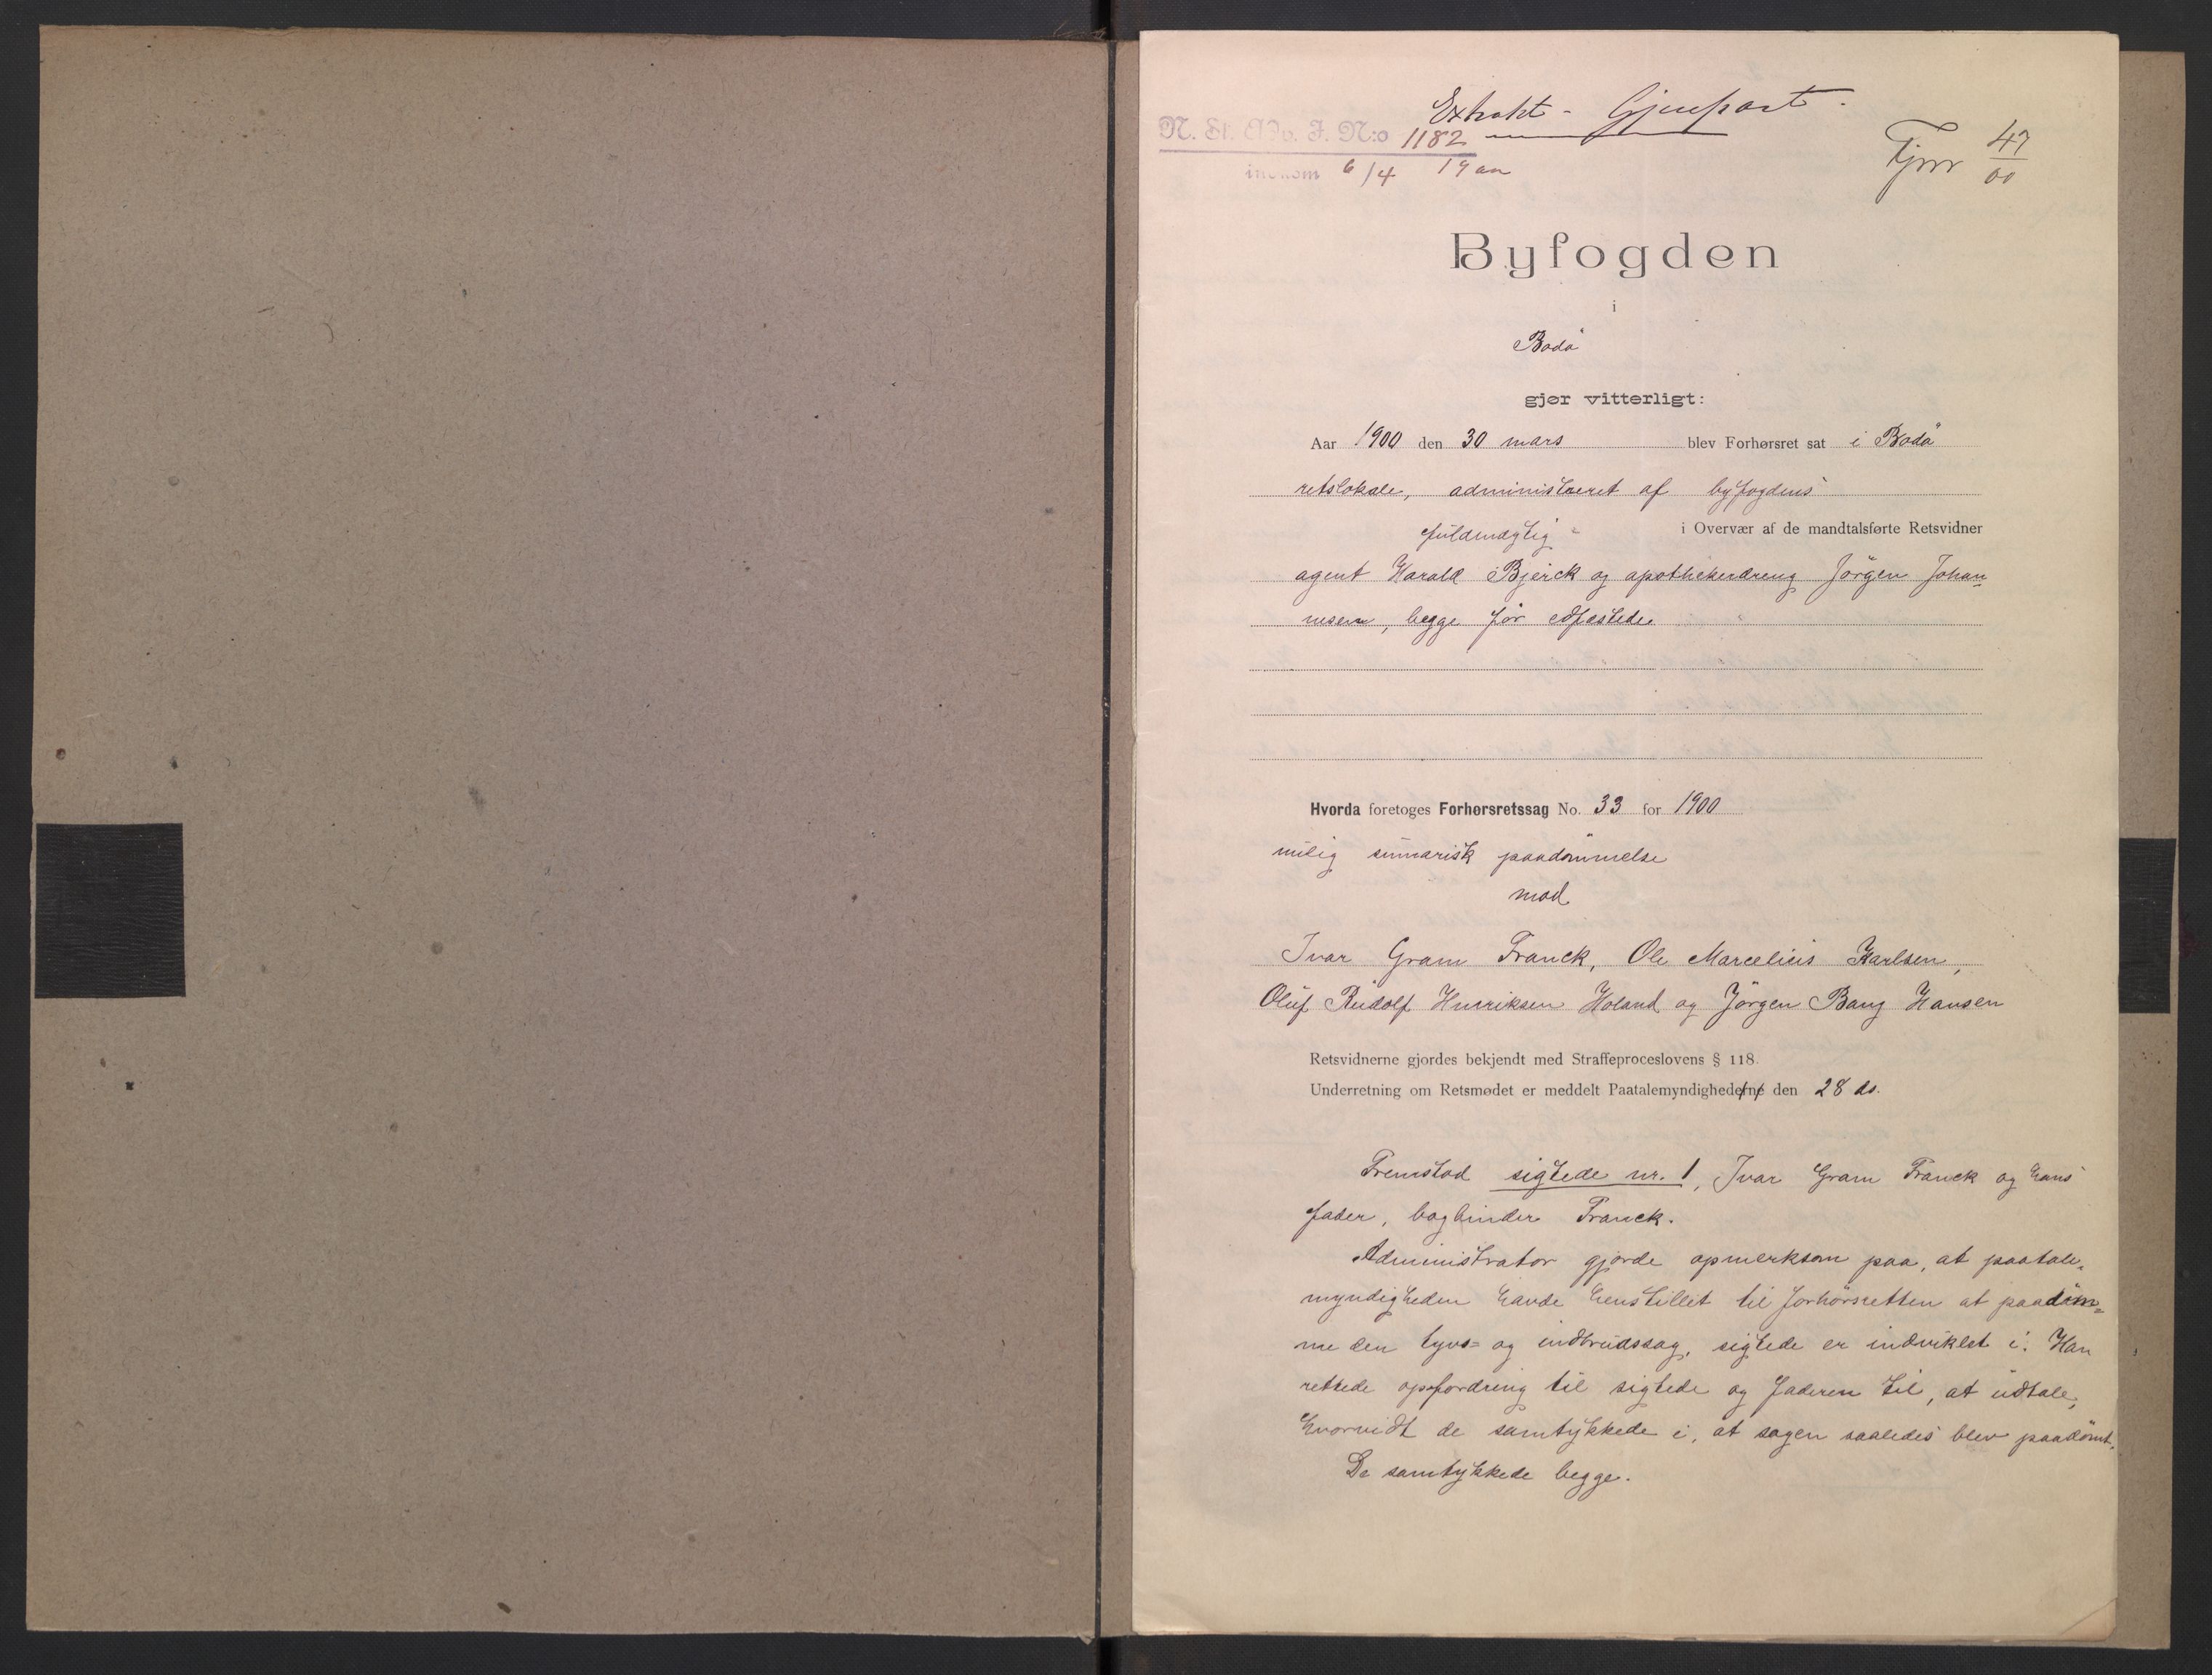 Extrakt - Gjenpart.
N. St. Adv. J. N:o 1182
indkom 6/4 19 00
47/00
Byfogden
i
Bodö
gjør vitterligt:
Aar 1900 den 30 mars blev Forhørsret sat i Bodö
retslokale, administreret af byfogdens
fuldmægtig i Overvær af de mandtalsførte Retsvidner
agent Harald Bjerck og apothekerdreng Jörgen Johan=
nsen, begge för edfæstede
Hvorda foretoges Forhørsretssag No. 33 for 1900
nilig summarisk paadömmelse
mod
Ivar Gram Franck, Ole Marcelius Karlsen,
Oluf Rudolf Henriksen Holand og Jörgen Bang Hansen
Retsvidnerne gjordes bekjendt med Straffeproceslovens § 118.
Underretning om Retsmødet er meddelt Paatalemyndighederne den 28 ds.
Fremstod sigtede nr. 1, Ivar Gram Franck og hans
fader, bogbinder Franck.
Administrator gjorde opmerksom paa, at paatale=
myndigheden havde henstillet til forhörsretten at paadöm=
me den tyvs= og indbrudssag, sigtede er indviklet i. Han
rettede opfordring til sigtede og faderen til, at udtale,
hvorvidt de samtykkede i, at sagen saaledes blev paadömt.
De samtykkede begge.